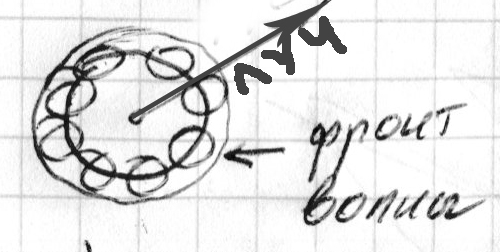 луч
фронт
волны